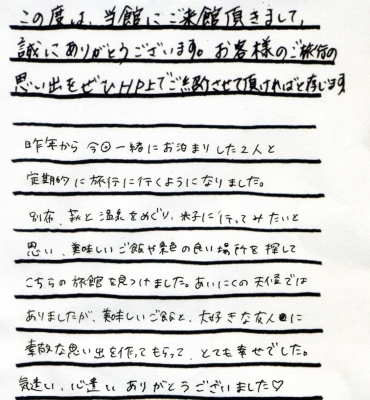 この度は、当館にご来館頂きまして、
誠にありがとうございます。お客様のご旅行の
思い出をぜひHP上でご紹介させて頂ければと存じます
昨年から今回一緒にお泊まりした2人と
定期的に旅行に行くようになりました。
別府、萩と温泉をめぐり、米子に行ってみたいと
思い、美味しいご飯や景色の良い場所を探して
こちらの旅館を見つけました。あいにくの天候では
ありましたが、美味しいご飯と、大好きな友人に
素敵な思い出を作ってもらって、とても幸せでした。
気遣い、心遣い ありがとうございました♡